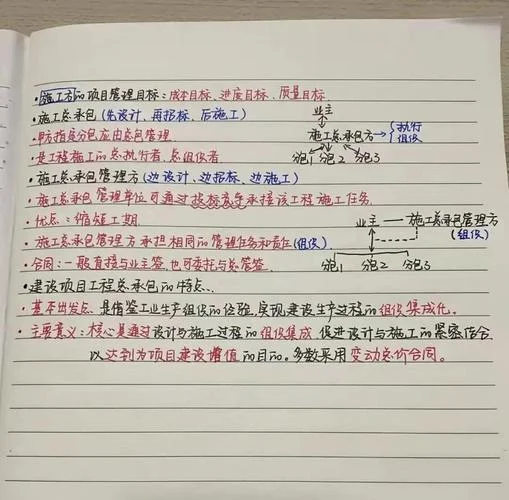 ·施工方的项目管理目标:成本目标、进度目标、质量目标
·施工总承包(先设计、再招标、后施工)
业主
·甲方指定分包应由总包管理.
施工总承包方→{执行 组织
·是工程施工的总执行者、总组织者
分包1 分包2 分包3
·施工总承包管理方(边设计、边招标、边施工)
·施工总承包管理单位可通过投标竞争承接该工程施工任务.
·优点:缩短工期.
业主——施工总承包管理方
(组织)
·施工总承包管理方承担相同的管理任务和责任(组织)
·合同:一般直接与业主签,也可委托与总管签.
分包1 分包2 分包3
·建设项目工程总承包的特点.
·基本出发点是借鉴工业生产组织的经验,实现建设生产过程的组织集成化。
·主要意义:核心是通过设计与施工过程的组织集成,促进设计与施工的紧密结合,
以达到为项目建设增值的目的。多数采用变动总价合同。